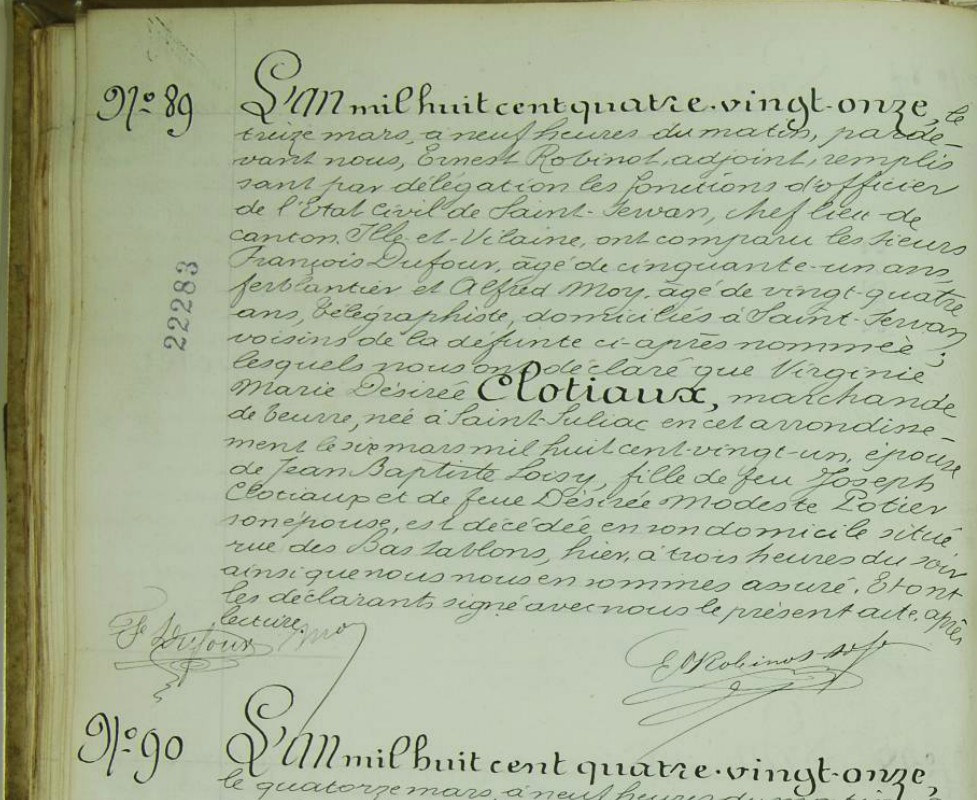 N° 89
L'an mil huit cent quatre-vingt-onze, le
treize mars, à neuf heures du matin, parde-
vant nous, Ernest Robinot, adjoint, remplis
sant par délégation les fonctions d'officier
de l'Etat Civil de Saint-Servan, chef lieu de
canton, Ille-et-Vilaine, ont comparu les sieurs
François Dufour, âgé de cinquante-un ans,
ferblantier et Alfred Moy, âgé de vingt-quatre
ans, télégraphiste, domiciliés à Saint-Servan
voisins de la défunte ci-après nommée ;
lesquels nous ont déclaré que Virginie
Marie Désirée Clotiaux, marchande
de beurre, née à Saint-Suliac en cet arrondisse-
ment le six mars mil huit cent-vingt-un, épouse
de Jean Baptiste Loisy, fille de feu Joseph
Clotiaux et de feue Désirée Modeste Potier
son épouse, est décédée en son domicile situé
rue des Bas Sablons, hier, à trois heures du soir
ainsi que nous nous en sommes assuré. Et ont
les déclarants signé avec nous le présent acte, après
lecture.
22283
F Dufour
E Robinot
N° 90
L'an mil huit cent quatre-vingt-onze,
le quatorze mars, à neuf heures du